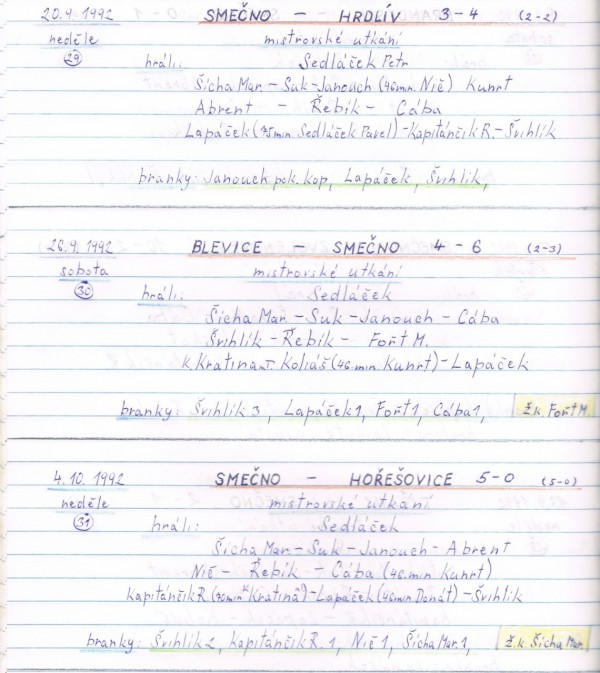 20.9.1992 SMEČNO – HRDLÍV 3-4 (2-2)
neděle mistrovské utkání
29 hráli: Sedláček Petr
Šícha Mar. – Suk – Janouch (46 min. Nič) Kunrt
Abrent – Řebík – Cába
Lapáček (75 min. Sedláček Pavel) – Kapitánčik R. – Švihlík
branky: Janouch pok. kop, Lapáček, Švihlík,
26.9.1992 BLEVICE – SMEČNO 4-6 (2-3)
sobota mistrovské utkání
30 hráli: Sedláček
Šícha Mar. – Suk – Janouch – Cába
Švihlík – Řebík – Fořt M.
Koliáš (46. min. Kunrt) – Lapáček
branky: Švihlík 3, Lapáček 1, Fořt 1, Cába 1, ž.k. Fořt M.
4.10.1992 SMEČNO – HOŘEŠOVICE 5-0 (5-0)
neděle mistrovské utkání
31 hráli: Sedláček
Šícha Mar. – Suk – Janouch – Abrent
Nič – Řebík – Cába (46. min Kunrt)
Kapitánčik R (70 min Kratina) – Lapáček (46 min Donát) – Švihlík
branky: Švihlík 2, Kapitánčik R. 1, Nič 1, Šícha Mar. 1, ž.k. Šícha Mar.